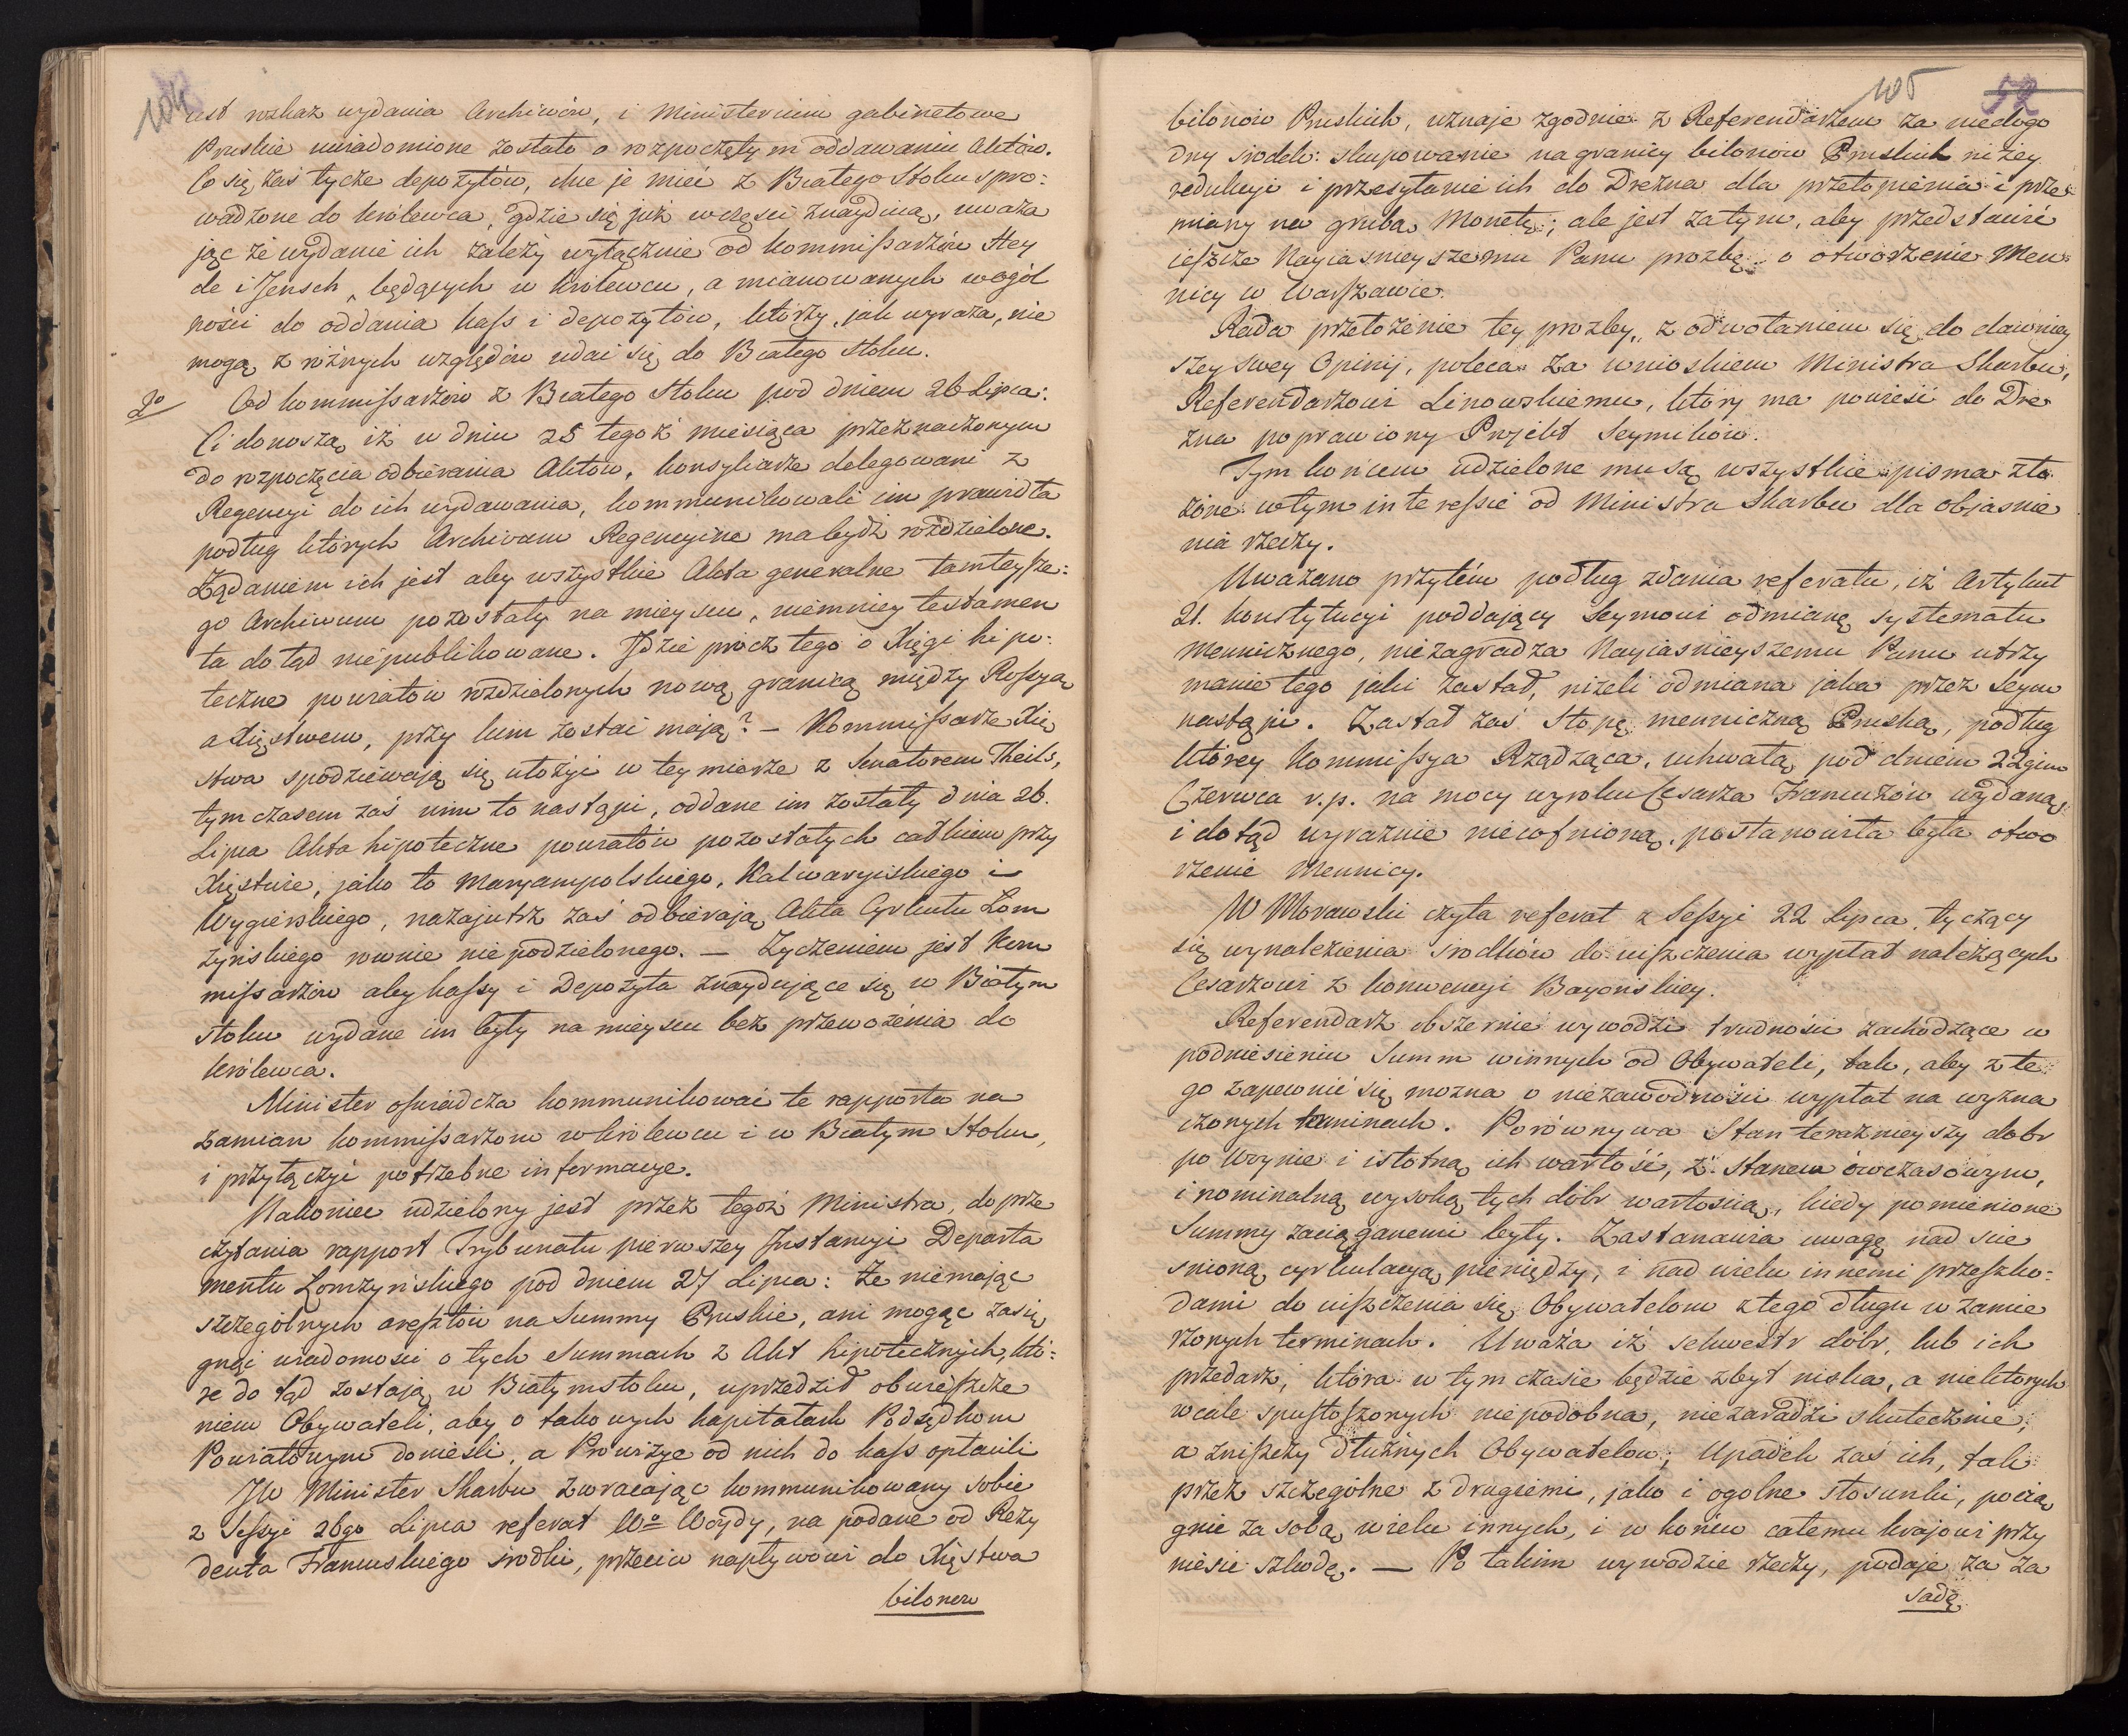 104
ust rozkaz wydania Archiwów, i Ministerium gabinetowe
Pruskie uwiadomione zostało o rozpoczętym oddawaniu Aktów.
Co się zaś tycze depozytów, chce je mieć z Białego Stoku spro:
wadzone do królewca, gdzie się już wczęści znaydują, uważa
jąc że wydanie ich zależy wyłącznie od kommissarzów Hey
de i Jensch, będących w Królewcu, a mianowanych wogól
ności do oddania kass i depozytów, którzy, jak wyraża, nie
mogą z różnych względów udać się do Białego Stoku.
2o Od kommissarzów z Białego Stoku pod dniem 26 Lipca:
Ci donoszą iż w dniu 25 tegoż miesiąca przeznaczonym
do rozpoczęcia odbierania Aktów, konsyliarze delegowani z
Regencyi do ich wydawania, kommunikowali im prawidła
podług których Archivum Regencyine ma bydź rozdzielone.
Żądaniem ich jest aby wszystkie Akta generalne tamteysze:
go Archivum pozostały na mieyscu, niemniey testamen
ta do tąd niepublikowane. Idzie prócz tego o Xięgi hipo:
teczne powiatów rozdzielonych nową granicą między Rossyą
a Xięstwem, przy kim zostać mają? — Kommissarze Xię
stwa spodziewają się ułożyć w tey mierze z Senatorem Theils,
tym czasem zaś nim to nastąpi, oddane im zostały dnia 26.
Lipca Akta hipoteczne powiatów pozostałych całkiem przy
Xięstwie, jako to Maryampolskiego, Kalwaryiskiego i
Wygierskiego, nazajutrz zaś odbierają Akta Cyrkułu Łom
żyńskiego rownie niepodzielonego. — Życzeniem jest kom
missarzów aby kassy i Depozyta znayduiące się w Białym
stoku wydane im były na mieyscu bez przewożenia do
królewca.
Minister oświadcza kommunikować te rapporta na
zamian kommissarzom w królewcu i w Białym Stoku,
i przyłączyć potrzebne informacye.
Nakoniec udzielony jest przez tegoż Ministra, do prze
czytania rapport Trybunału pierwszey Instancyi Departa
mentu Łomżyńskiego pod dniem 27 Lipca: Że niemając
szczególnych aresztów na Summy Pruskie, ani mogąc zasię
gnąć wiadomości o tych Summach z Akt hipotecznych, któ:
re do tąd zostają w Białymstoku, uprzedził obwieszcze
niem Obywateli, aby o takowych kapitałach Podsędkom
Powiatowym donieśli, a Prowizye od nich do kass opłacili
JW Minister Skarbu zwracając kommunikowany sobie
z Sessyi 26go Lipca referat Wo Woydy, na podane od Rezy
denta Francuskiego środki, przeciw napływowi do Xięstwa
bilonow
105
52
bilonów Pruskich, uznaje zgodnie z Referendarzem za niedogo
dny środek: skupowanie na granicy bilonów Pruskich niżey
redukcyi i przesyłanie ich do Drezna dla przetopienia i prze:
miany na grubą Monetę; ale jest zatym, aby przedstawić
ieszcze Nayiasnieyszemu Panu prozbę o otworzenie Men:
nicy w Warszawie.
Rada przełożenie tey prozby, z odwołaniem się do dawniey
szey swey Opinij, poleca za wnioskiem Ministra Skarbu,
Referendarzowi Linowskiemu, który ma powieść do Dre
zna poprawiony Projekt Seymików.
Tym końcem udzielone mu są wszystkie pisma zło
żone w tym interessie od Ministra Skarbu dla objasnie
nia rzeczy.
Uważano przytém podług zdania referatu, iż Artykuł
21. Konstytucyi poddający Seymowi odmianę systematu
Menniczego, niezagradza Nayiasnieyszemu Panu utrzy
manie tego jaki zastał, niżeli odmiana jaka przez Seym
nastąpi. Zastał zaś Stopę menniczną Pruską, podług
którey Kommissya Rządząca, uchwałą pod dniem 22gim
Czerwca r.p. na mocy wyroku Cesarza Francuzów wydaną,
i dotąd wyraznie niecofnioną, postanowiła była otwo
rzenie Mennicy.
W Morawski czyta referat z Sessyi 22 Lipca, tyczący
się wynalezienia środków do uiszczenia wypłat należących
Cesarzowi z konwencyi Bayońskiey.
Referendarz obszernie wywodzi trudności zachodzące w
podniesieniu Summ winnych od Obywateli, tak, aby z te
go zapewnić się można o niezawodności wypłat na wyzna
czonych terminach. Porównywa Stan teraznieyszy dobr
po Woynie i istotną ich wartość, z stanem ówczasowym,
i nominalną wysoką tych dóbr wartością, kiedy pomienione
Summy zaciąganemi były. Zastanawia uwagę nad ście
snioną cyrkulacyą pieniędzy, i nad wielu innemi przeszko:
dami do uiszczenia się Obywatelom z tego długu w zamie
rzonych terminach. Uważa iż sekwestr dóbr, lub ich
przedarz, która w tym czasie będzie zbyt niska, a niektorych
wcale spustoszonych niepodobna, niezaradzi skutecznie,
a zniszczy dłużnych Obywatelow; Upadek zaś ich, tak
przez szczególne z drugiemi, jako i ogolne stosunki, pocią
gnie za sobą wielu innych, i w końcu całemu krajowi przy
niesie szkodę. — Po takim wywodzie rzeczy, podaje za za
sadę